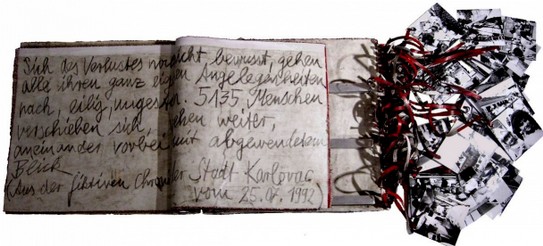 Sich des Verlustes noch nicht bewusst, gehen
alle ihren ganz eigenen Angelegenheiten
nach, eilig, ungestört. 5135 Menschen
verschieben sich, gehen weiter,
aneinander vorbei mit abgewendetem
Blick.
(Aus der fiktiven Chronik der Stadt Karlovac
vom 25.07.1992)